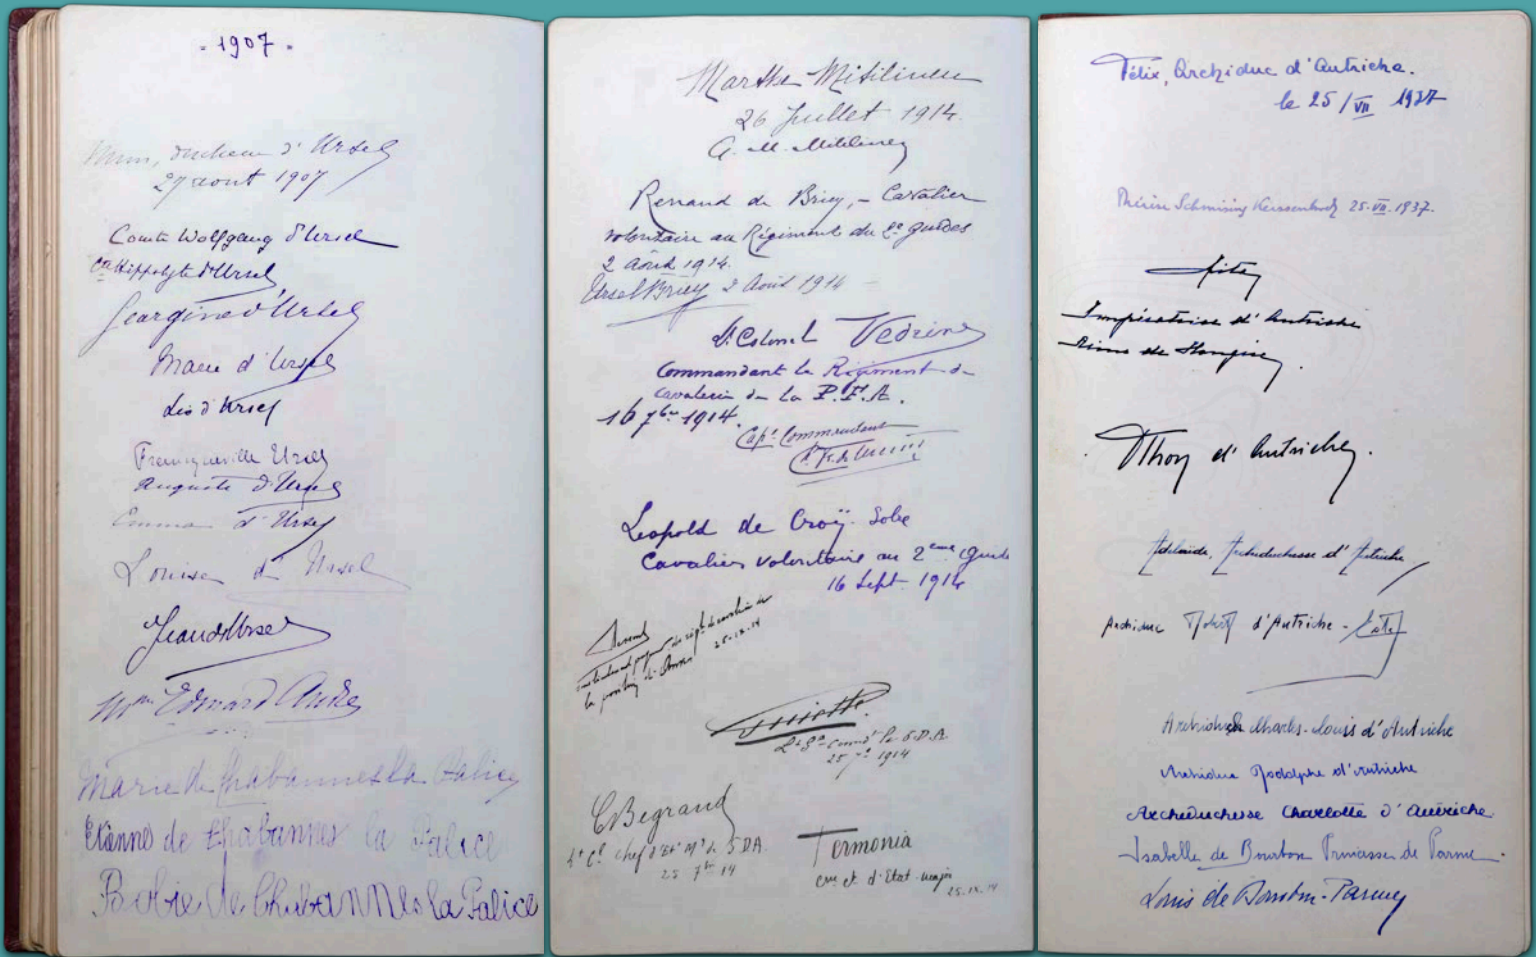 - 1907 -
duchesse d'Ursel
27 aout 1907
Comte Wolfgang d'Ursel
Cte Hippolyte d'Ursel
Georgine d'Ursel
d'Ursel
Léo d'Ursel
Francqueville Ursel
Auguste d'Ursel
Emma d'Ursel
Louise d'Ursel
Jean d'Ursel
Mme Edmard
Marie de Chabannes la Palice
Etienne de Chabannes la Palice
de Chabannes la Palice
Marthe Mitilineu
26 Juillet 1914.
Renaud de Briey, - Cavalier
volontaire au Régiment du 2e guides
2 Août 1914.
Ursel Briey 2 Août 1914 -
Lt Colonel
Commandant le Régiment de
cavalerie de la P.F.A.
16 7bre 1914.
Capt Commandant
Léopold de Croÿ. Solre
Cavalier volontaire au 2eme Guide
16 Sept. 1914
25-IX-14
la position d'Anvers
25 7e 1914
C Begrand
Lt Cl chef d'Et Mr de 5 DA.
25 7bre 14
Termonia
d'Etat-major
25.IX.14
Félix, Archiduc d'Autriche.
le 25/VII 1937
25.VII.1937.
Zita
Impératrice d'Autriche
Reine de Hongrie.
Othon d'Autriche.
Adélaïde, Archiduchesse d'Autriche
Archiduc Robert d'Autriche-Este
Archiduc Charles-Louis d'Autriche
Archiduc Rodolphe d'Autriche
Archiduchesse Charlotte d'Autriche.
Isabelle de Bourbon Princesse de Parme.
Louis de Bourbon-Parme